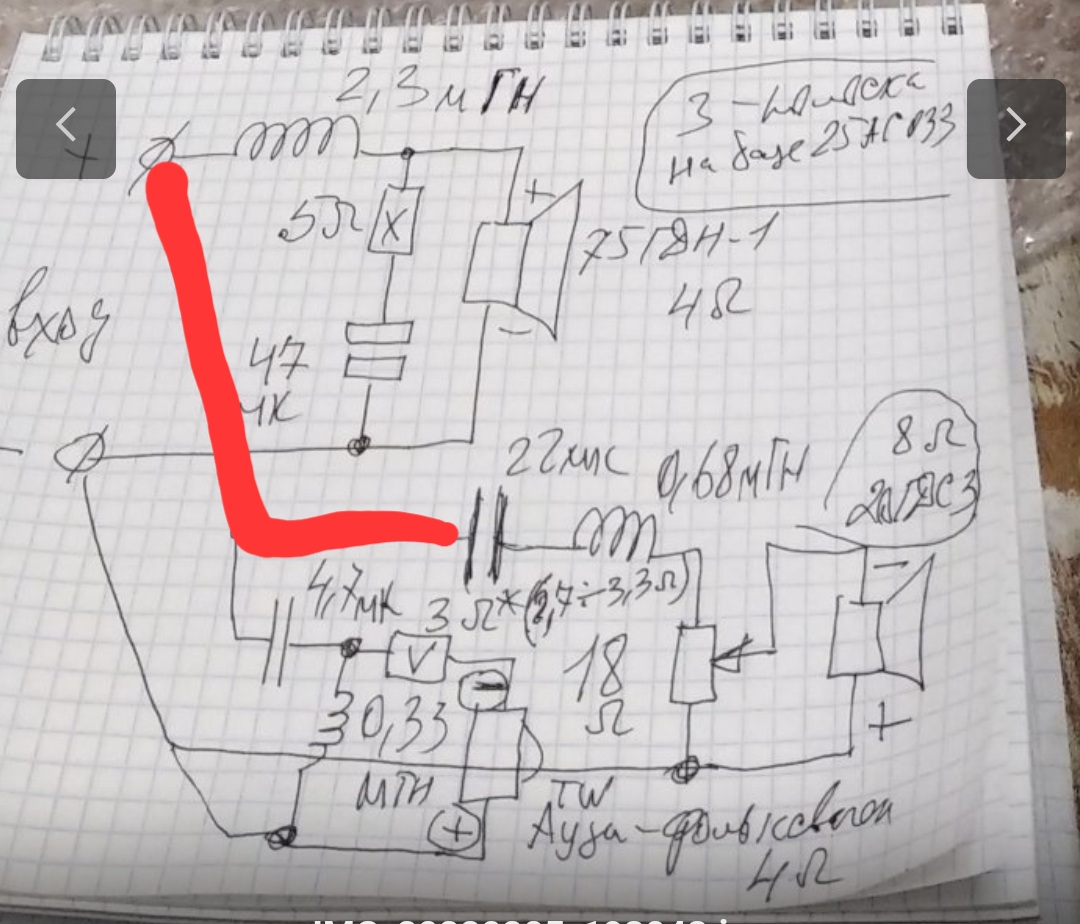 2,3 мГН
3 - полоска
на базе 25АС033
+
5Ω
X
+
75ГДН-1
4Ω
-
вход
47
мк
22мкс
0,68мГН
8Ω
20ГДС3
4,7мк
3Ω*(2,7÷3,3Ω)
-
V
-
18
Ω
0,33
МГН
+
+
TW
Ауди-фольксваген
4Ω